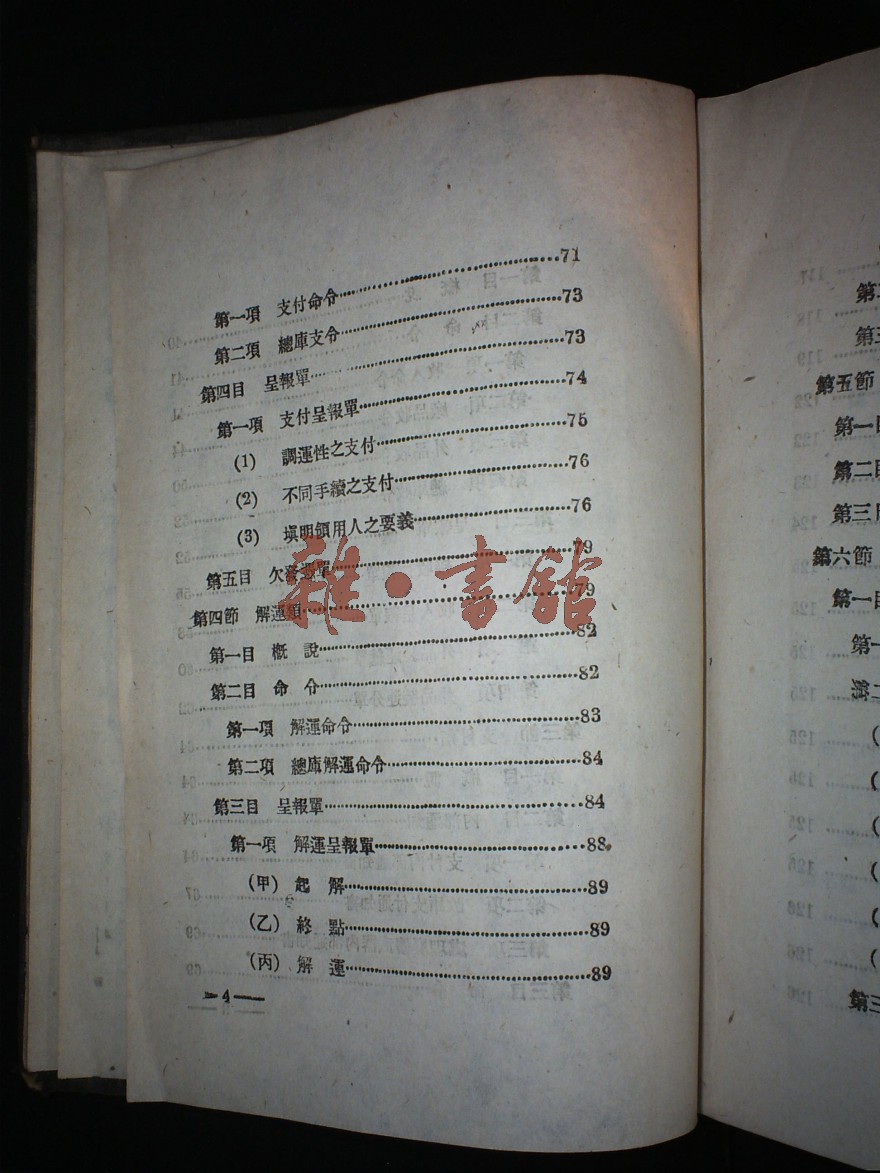 第一項 支付命令……71
第二項 總庫支令……73
第四目 呈報單……73
第一項 支付呈報單……74
(1) 調運性之支付……75
(2) 不同手續之支付……76
(3) 塡明領用人之要義……76
第五目 欠發 單……79
第四節 解運類……79
第一目 概 說……82
第二目 命 令……82
第一項 解運命令……83
第二項 總庫解運命令……84
第三目 呈報單……84
第一項 解運呈報單……88
(甲) 起 解……89
(乙) 終 點……89
(丙) 解 運……89
—4—
雜·書館
第三
第五節
第一目
第二目
第三目
第六節
第一目
第一
第三